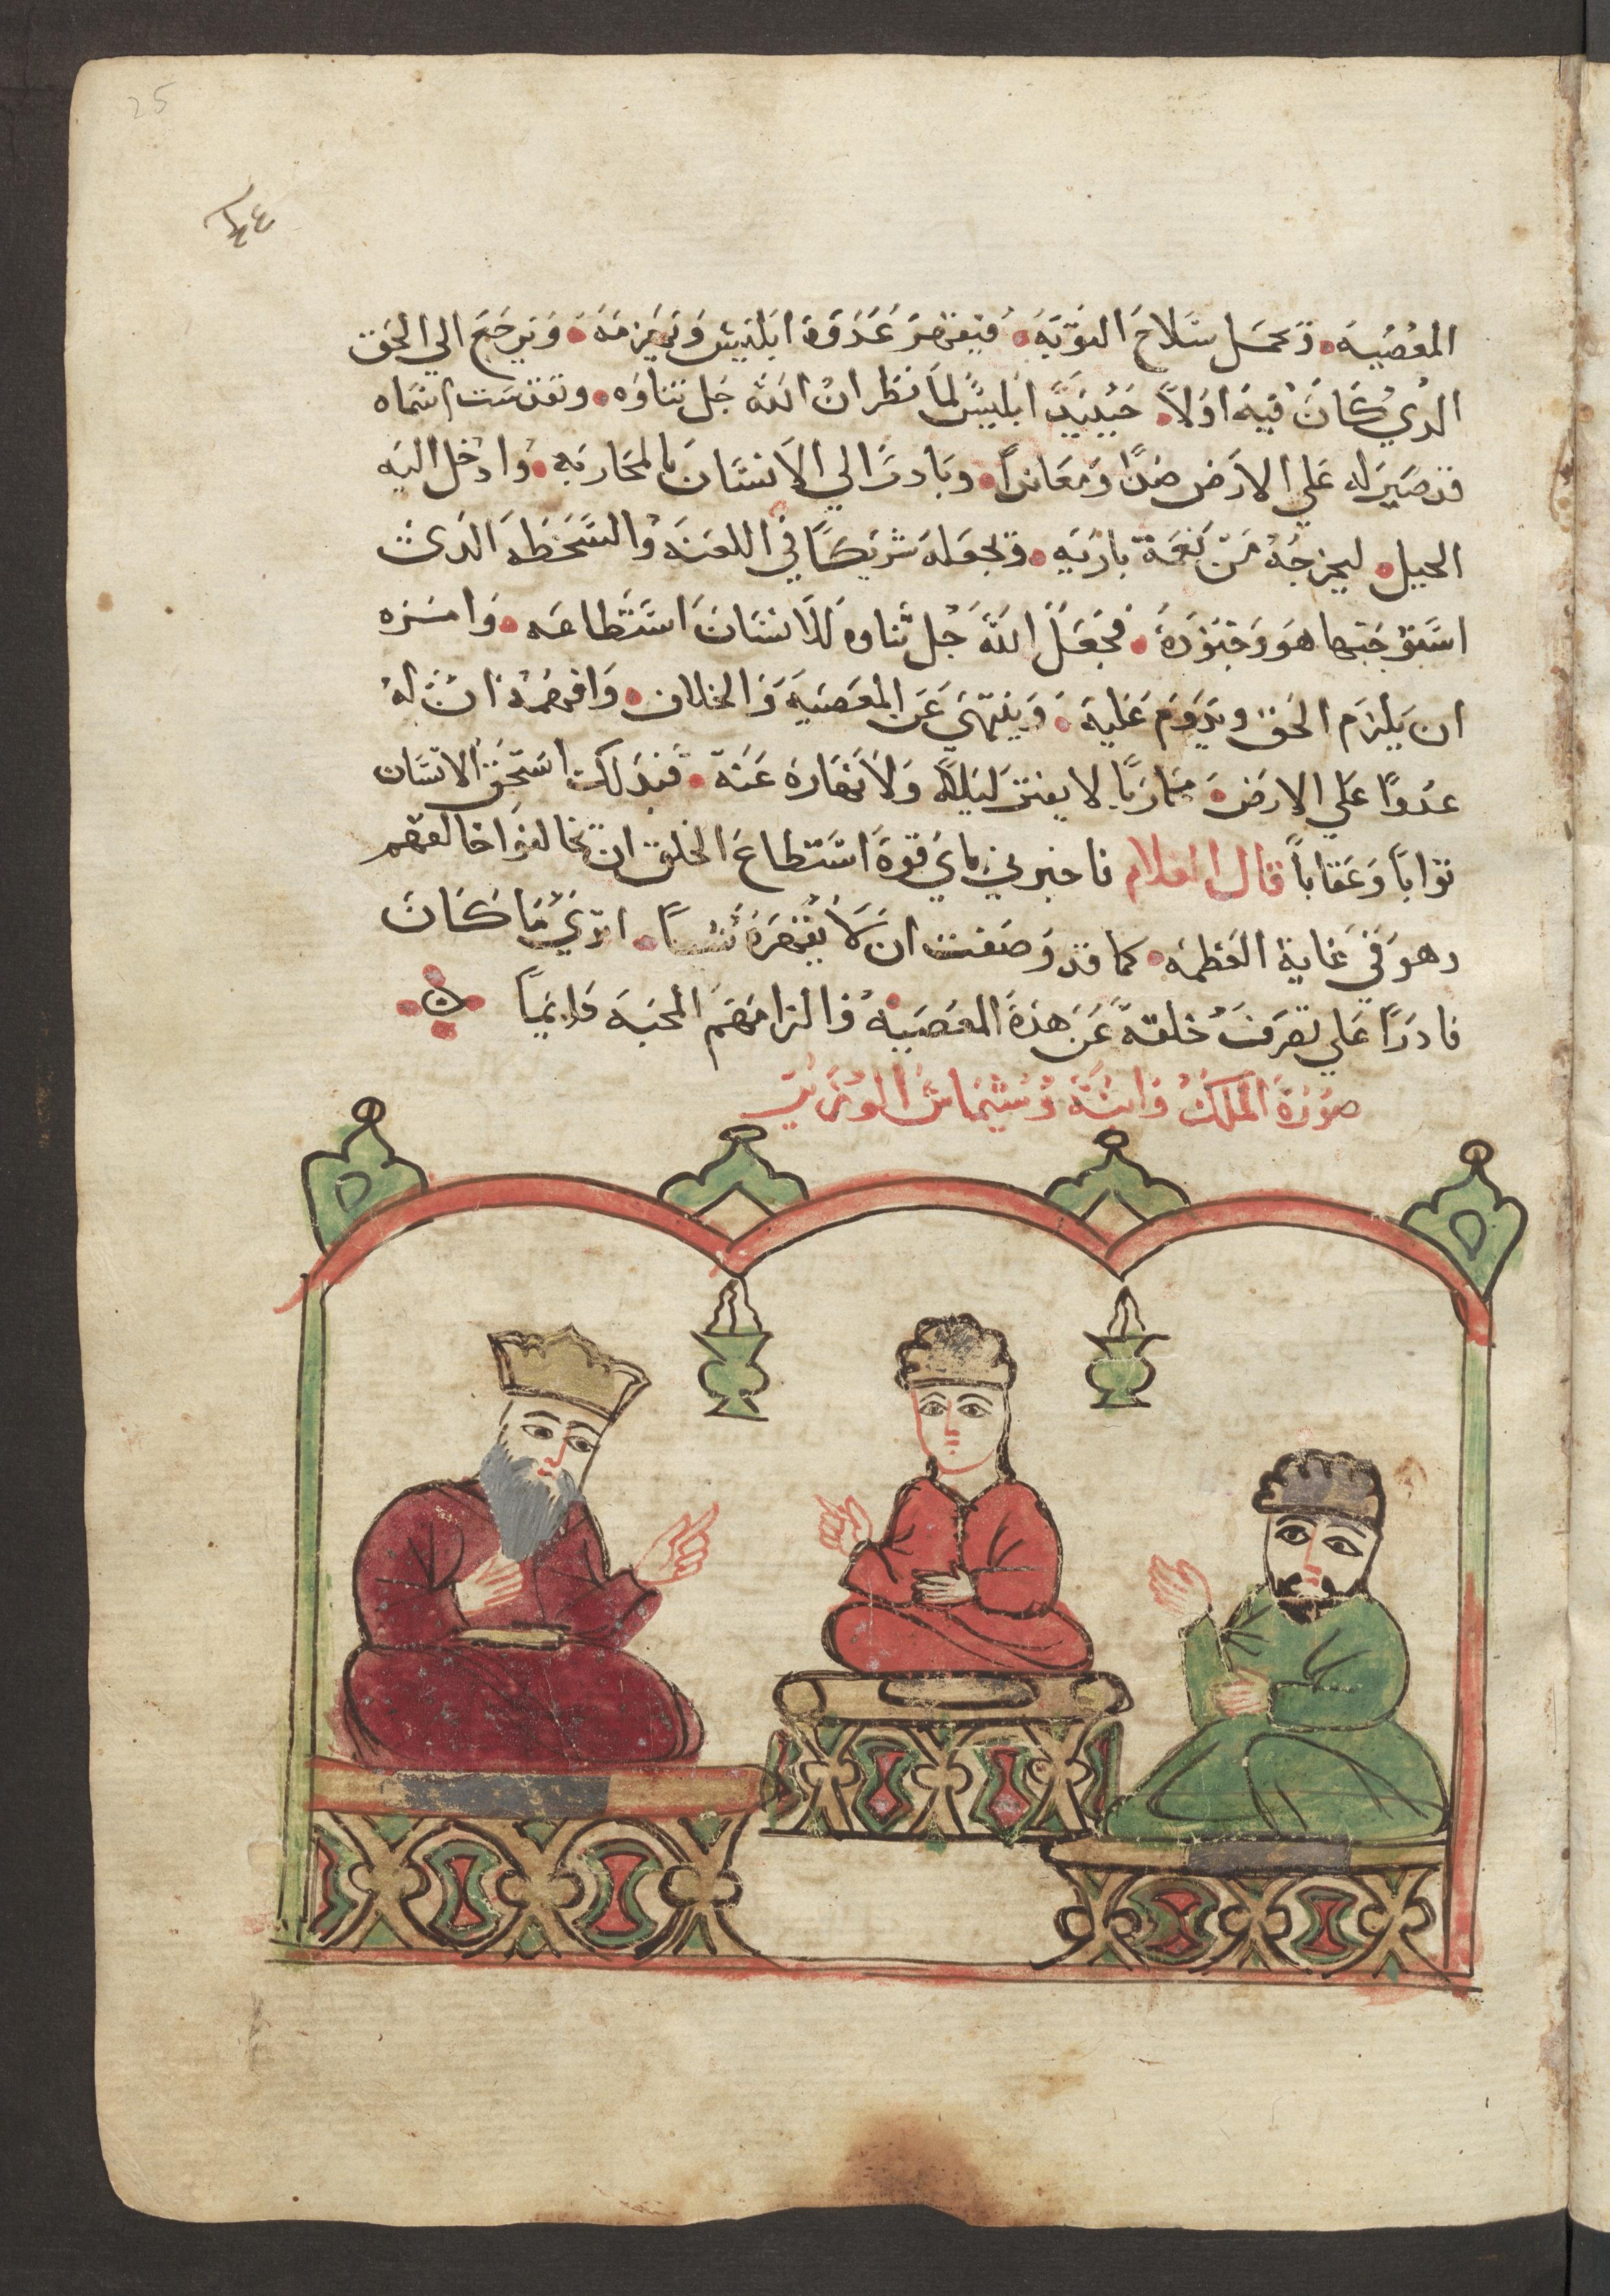 25
٤٤
المعصيه. وتحمل سلاح التوبه. فيقهر عدوه ابليس ويهزمه. ويرجع الي الحق
الدي كان فيه اولاً. حينيدٍ ابليس لما نظر ان الله جل تناوه. وتقدست اسماه
قد صير له علي الارض ضدًا ومعاندًا. وبادر الي الانسان بالمحاربه. وادخل اليه
الحيل. ليخرجه من نعمة باريه. ويجعله شريكًا في اللعنه والسخطه الدي
استوجبها هو وجنوده. فجعل الله جل تناوه للانسان استطاعه. وامره
ان يلزم الحق ويدوم عليه. وينتهي عن المعصيه والخلاف. وافهمه ان له
عدوًا علي الارض. محاربًا لا يفتر ليله ولا نهاره عنه. فبدلك استحق الانسان
توابًا وعقابًا قال الغلام فاخبرني باي قوة استطاع الخلق ان تخالفوا خالقهم
وهو في غاية العظمه. كما قد وصفت ان لا يقهره شيًا. اتري ما كان
قادرًا علي تصرف خلقه عن هذه المعصيه والزامهم المحبه دايمًا
صورة الملك وابنه وشيماش الوزير